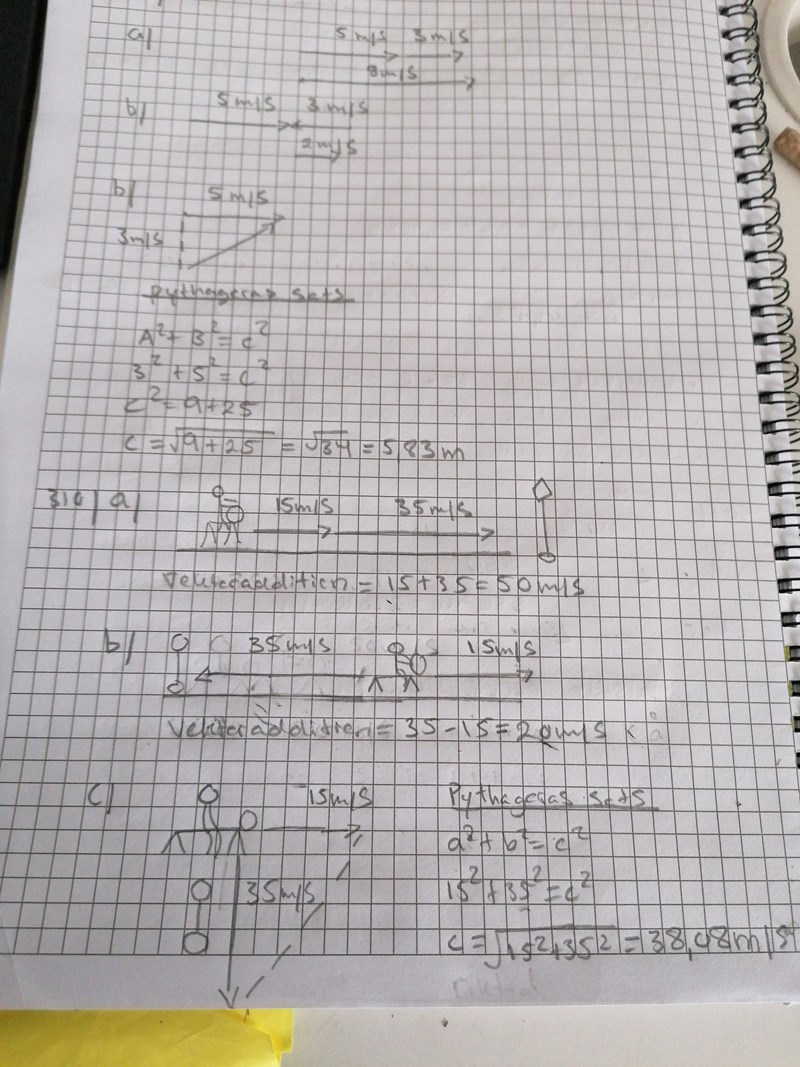 a) 5 m/s 3 m/s
8 m/s
b) 5 m/s 3 m/s
2 m/s
b) 5 m/s
3 m/s
Pythagoras sats
A² + B² = c²
3² + 5² = c²
c² = 9+25
c = √9+25 = √34 = 5,83 m
310) a) 15 m/s 35 m/s
Vektoraddition = 15+35 = 50 m/s
b) 35 m/s 15 m/s
Vektoraddition = 35 - 15 = 20 m/s
c) 15 m/s Pythagoras sats
a² + b² = c²
35 m/s 15² + 35² = c²
c = √15²+35² = 38,08 m/s